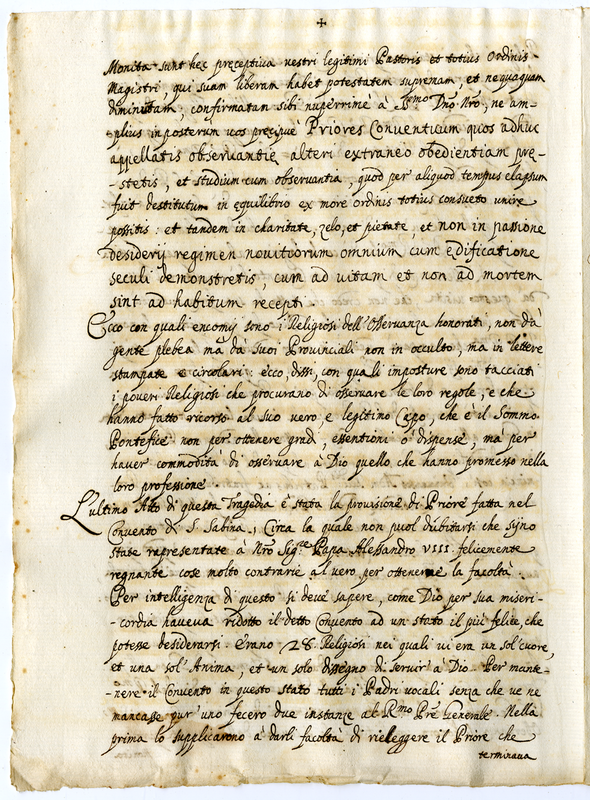 Monita sunt hec preceptiva vestri legitimi Pastoris et totius Ordinis
Magistri, qui suam liberam habet potestatem supremam et nequaquam
diminutam, confirmatam sibi nuperrimè à S.mo Dno Nro, ne am-
plius inposterum vos precipuè Priores Conventuum quos adhuc
appellatis observantie alteri extraneo obedientiam pre-
-stetis, et studium cum observantia, quod per aliquod tempus elapsum
fuit destitutum in equilibrio ex more ordinis totius consueto unire
possitis: et tandem in charitate, zelo, et pietate, et non in passione
desiderij regimen novitiorum omnium cum edificatione
seculi demonstretis, cum ad vitam et non ad mortem
sint ad habitum recepti
Ecco con quali encomij sono i Religiosi dell'Osservanza honorati, non dà
gente plebea mà dà suoi Provinciali non in occulto, ma in lettere
stampate e circolari: ecco, dissi, con quali imposture sono tacciati
i poveri Religiosi che procurano di osservare le loro regole, e che
hanno fatto ricorso al suo vero e legitino Capo, che è il Sommo
Pontefice non per ottenere gradi, essentioni ò dispense, mà per
haver commodità di osservare à Dio quello che hanno promesso nella
loro professione.
L'ultimo Atto di questa Tragedia è stata la provisione di Priore fatta nel
Convento di S. Sabina, Circa la quale non puol dubitarsi che sijno
state representate à Nro Sig.re Papa Alesandro VIII felicemente
regnante cose molto contrarie al vero per ottenerne la facoltà.
Per intelligenza di questo si deve sapere, come Dio per sua miseri-
-cordia haveva ridotto il detto Convento ad un stato il più felice, che
potesse desiderarsi Erano 28 Religiosi nei quali vi era un sol cuore,
et una sol' Anima, et un solo disegno di servir à Dio. Per mante-
-nere il Convento in questo stato tutti i Padri vocali senza che ve ne
mancasse pur uno fecero due instanze al R.mo Pre Generale. Nella
prima lo supplicarono à darli facoltà di rieleggere il Priore che
terminava